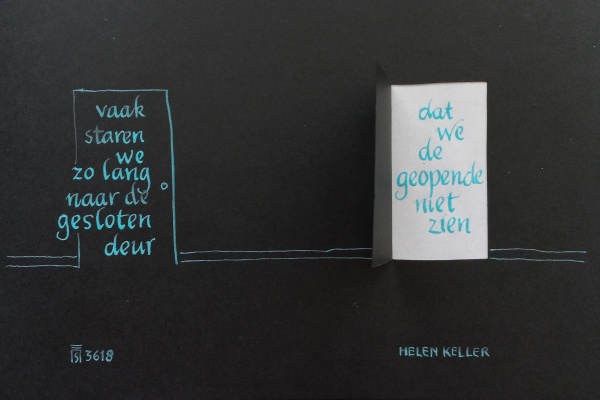 vaak
staren
we
zo lang
naar de
gesloten
deur
dat
we
de
geopende
niet
zien
3618
HELEN KELLER